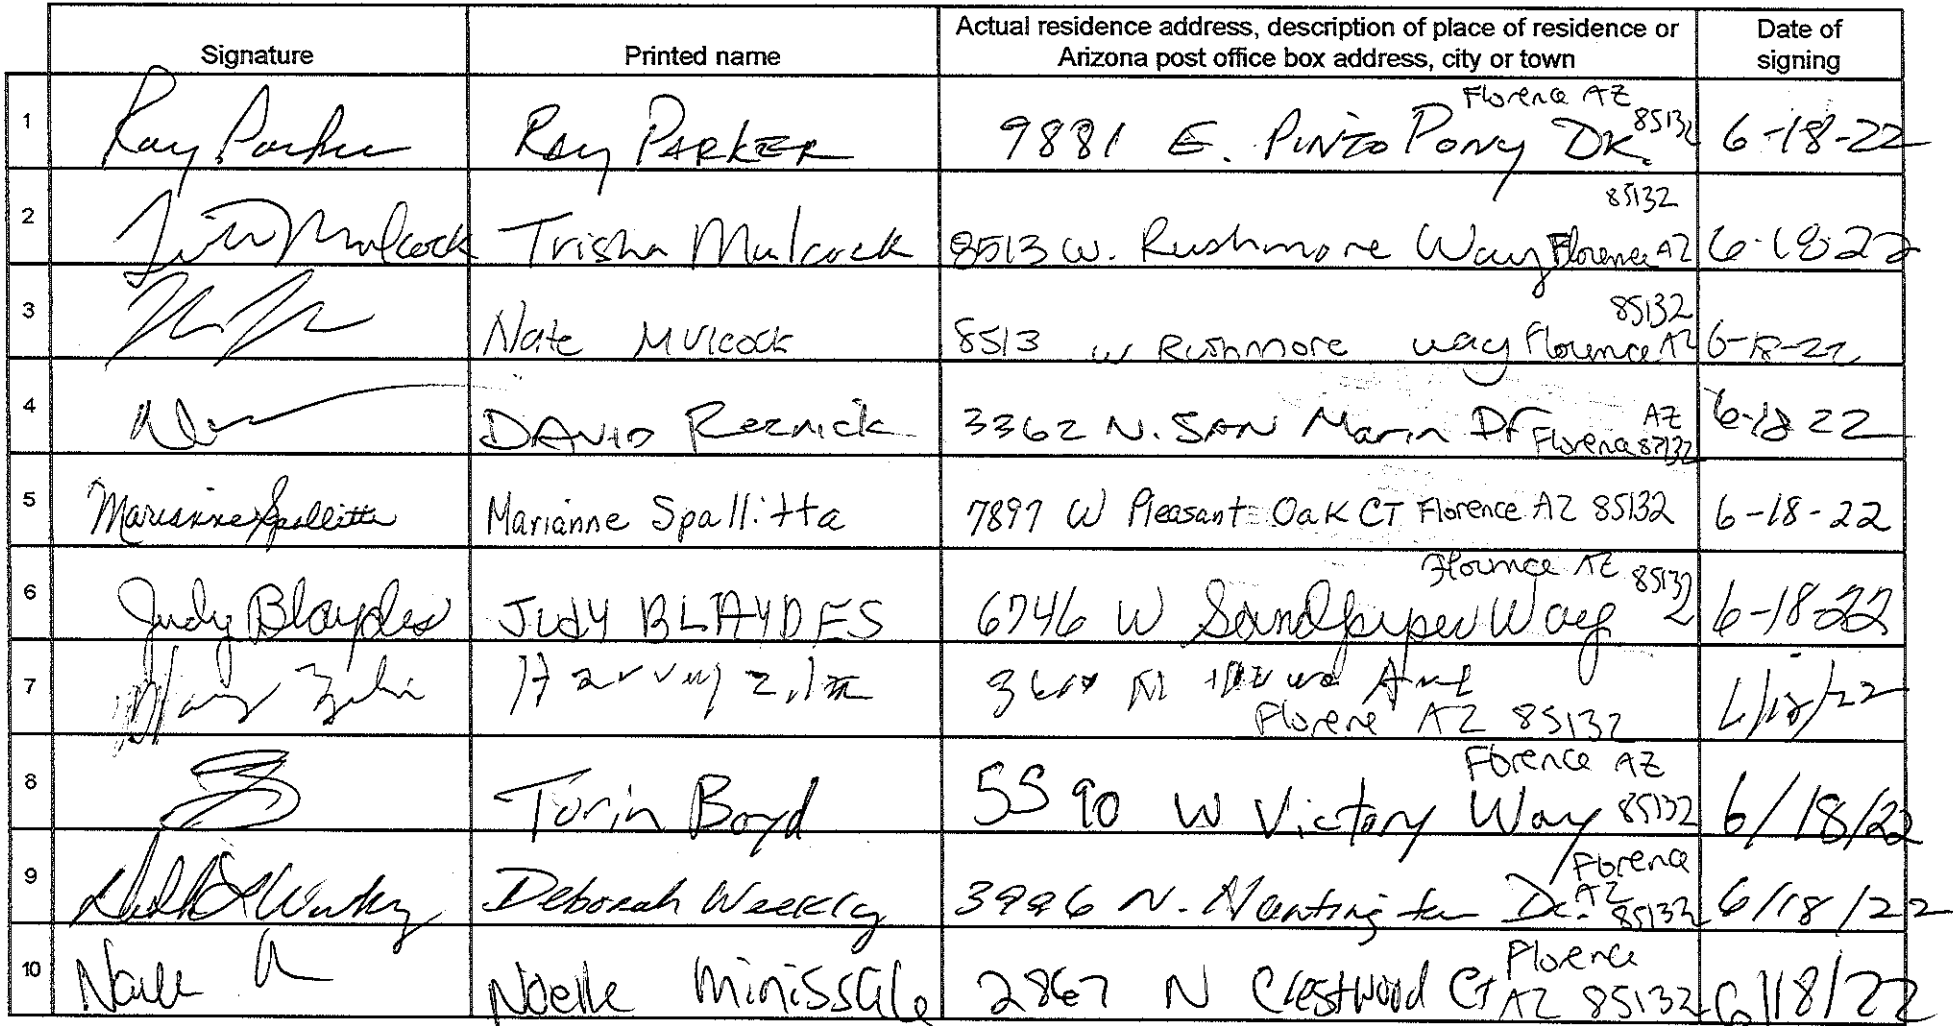 Signature Printed name Actual residence address, description of place of residence or Arizona post office box address, city or town Date of signing
1 Ray Parker Ray PARKER 9881 E. PINTO PONY DR. Florence AZ 85132 6-18-22
2 Mulcock Trisha Mulcock 8513 W. Rushmore Way Florence AZ 85132 6-18-22
3 Nate Mulcock 8513 W Rushmore way Florence AZ 85132 6-18-22
4 DAVID Reznick 3362 N. SAN Marin Dr Florence AZ 85132 6-18 22
5 Marianne Spallitta Marianne Spallitta 7897 W Pleasant Oak CT Florence AZ 85132 6-18-22
6 Judy Blaydes JUDY BLAYDES 6746 W Sandpiper Way Florence AZ 85132 6-18-22
7 Harvey N Florence AZ 85132 6/18/22
8 Torin Boyd 5590 W Victory Way Florence AZ 85132 6/18/22
9 Deborah Weekly 3996 N. Dr. Florence AZ 85132 6/18/22
10 Noelle Noelle Minissale 2867 N Crestwood Ct Florence AZ 85132 6/18/22